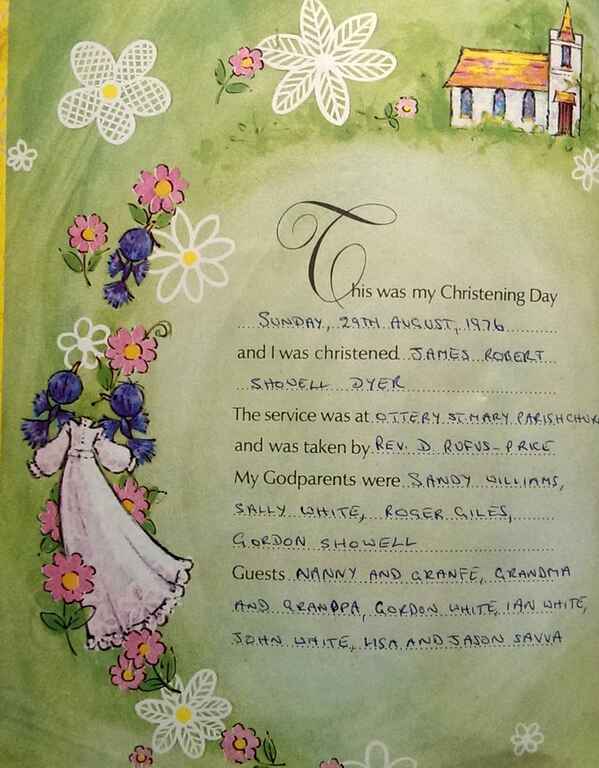 This was my Christening Day
SUNDAY, 29TH AUGUST, 1976
and I was christened JAMES ROBERT
SHOWELL DYER
The service was at OTTERY ST. MARY PARISH CHUR
and was taken by REV. D. RUFUS-PRICE
My Godparents were SANDY WILLIAMS,
SALLY WHITE, ROGER GILES,
GORDON SHOWELL
Guests NANNY AND GRANFE, GRANDMA
AND GRANDPA, GORDON WHITE, IAN WHITE,
JOHN WHITE, LISA AND JASON SAVVA